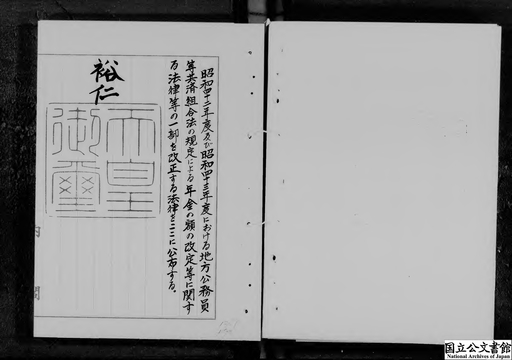 昭和四十二年度及び昭和四十三年度における地方公務員
等共済組合法の規定による年金の額の改定等に関す
る法律等の一部を改正する法律をここに公布する。
裕仁
天皇
御璽
内閣
国立公文書館
National Archives of Japan